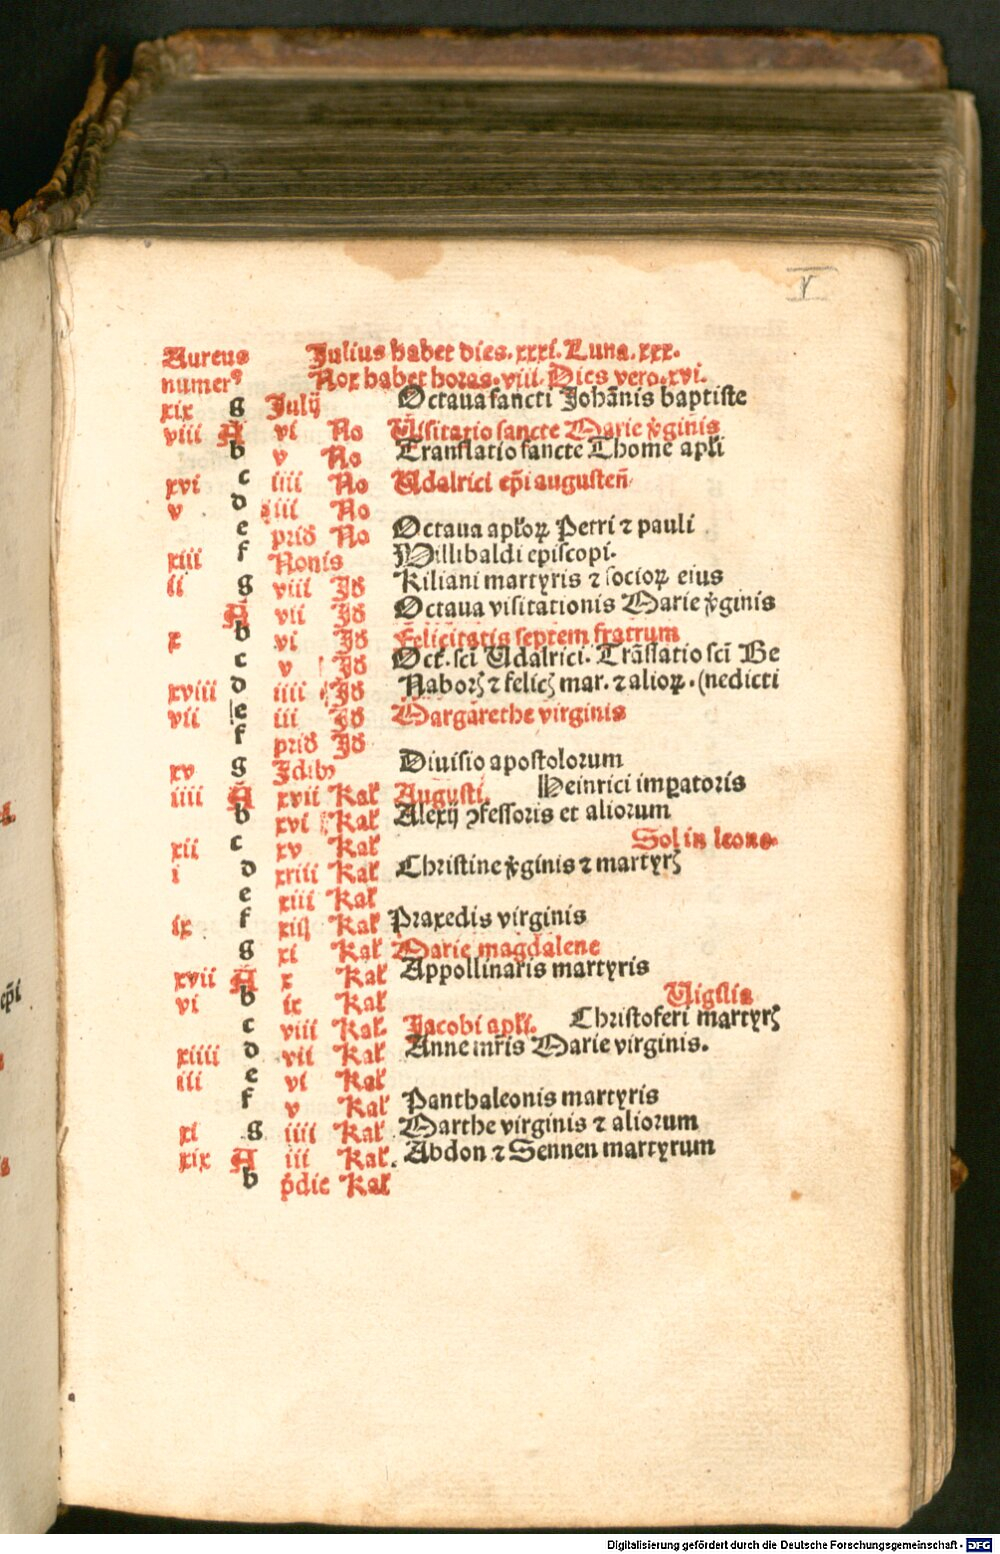 Aureus Julius habet dies. xxxi. Luna. xxx.
numerꝰ Nox habet horas. viii. Dies vero. xvi.
xix g Julij Octaua sancti Johānis baptiste
viii A vi No Uisitatio sancte Marie v̄ginis
b v No Translatio sancte Thome apłi
xvi c iiii No Udalrici ep̄i augusteñ
v d iii No
e prid No Octaua apłoꝝ Petri ⁊ pauli
xiii f Nonis Willibaldi episcopi.
ii g viii Id Kiliani martyris ⁊ socioꝝ eius
A vii Id Octaua visitationis Marie v̄ginis
x b vi Id Felicitatis septem fratrum
c v Id Oct. sci Udalrici. Trāslatio sci Be
xviii d iiii Id Naborꝭ ⁊ felicꝭ mar. ⁊ alioꝝ. (nedicti
vii e iii Id Margarethe virginis
f prid Id
xv g Idibꝰ Diuisio apostolorum
iiii A xvii Kał Augusti. Heinrici imꝑatoris
b xvi Kał Alexij ꝯfessoris et aliorum
xii c xv Kał Sol in leone
i d xiiii Kał Christine v̄ginis ⁊ martyrꝭ
e xiii Kał
ix f xii Kał Praxedis virginis
g xi Kał Marie magdalene
xvii A x Kał Appollinaris martyris
vi b ix Kał Uigilia
c viii Kał. Jacobi apłi. Christoferi martyrꝭ
xiiii d vii Kał Anne mr̄is Marie virginis.
iii e vi Kał
f v Kał Panthaleonis martyris
xi g iiii Kał Marthe virginis ⁊ aliorum
xix A iii Kał. Abdon ⁊ Sennen martyrum
b p̄die Kał
ep̄i
Digitalisierung gefördert durch die Deutsche Forschungsgemeinschaft - DFG